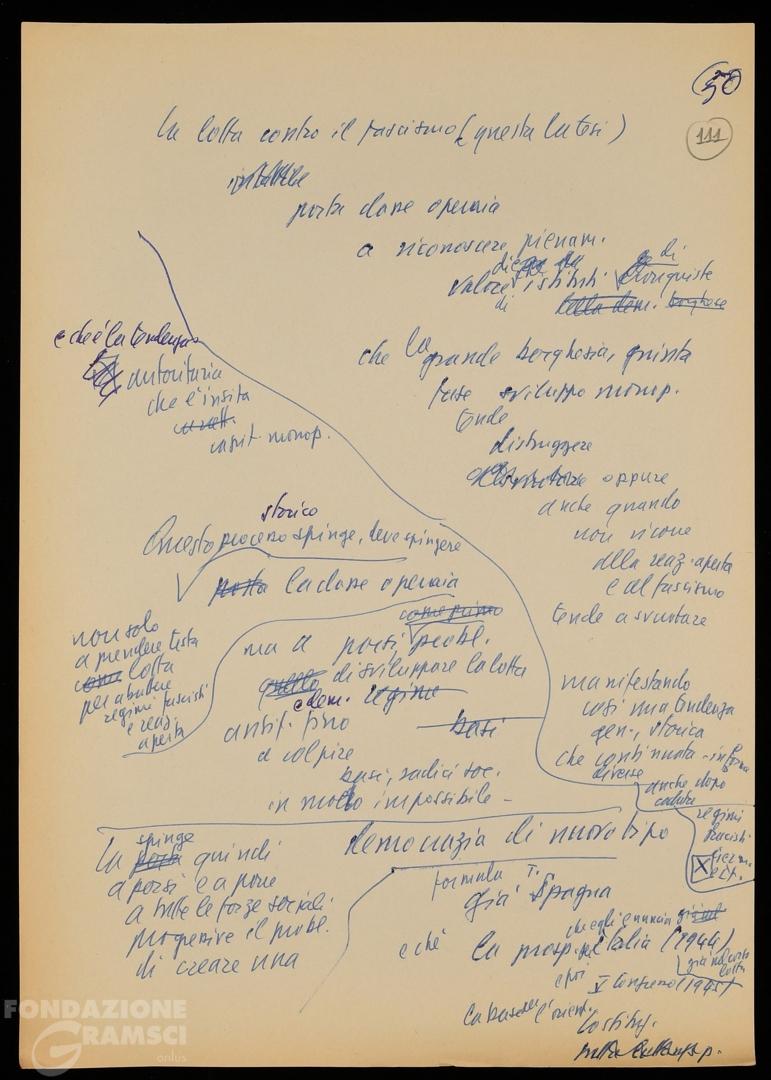 50
111
La lotta contro il fascismo (questa la tesi)
porta classe operaia
a riconoscere pienam.
valore istituti conquiste
di
che la grande borghesia, giunta
fase sviluppo monop.
tende
distruggere
oppure
anche quando
non ricorre
alla reaz. aperta
e al fascismo
tende a svuotare
manifestando
così una tendenza
gen., storica
che continuata - in forma
diverse
anche dopo
caduta
regimi
fascisti
e che è la tendenza
autoritaria
che è insita
capit. monop.
storico
Questo processo spinge, deve spingere
porta la classe operaia
non solo
a prendere testa
come lotta
per abbattere
regimi fascisti
e reaz.
aperta
ma a porsi probl.
quello di sviluppare la lotta
e dem. regime
antif. fino
basi
a colpire
basi, radici soc.
in modo impossibile -
La spinge quindi
a porsi e a porre
a tutte le forze sociali
progressive il probl.
di creare una
democrazia di nuovo tipo
formula T.
già Spagna
che egli enuncia
e che la prosp. Italia (1944)
già nel corso
lotta
e poi
V Congresso (1945)
la base dell'orient.
Costituz.
FONDAZIONE
GRAMSCI
onlus